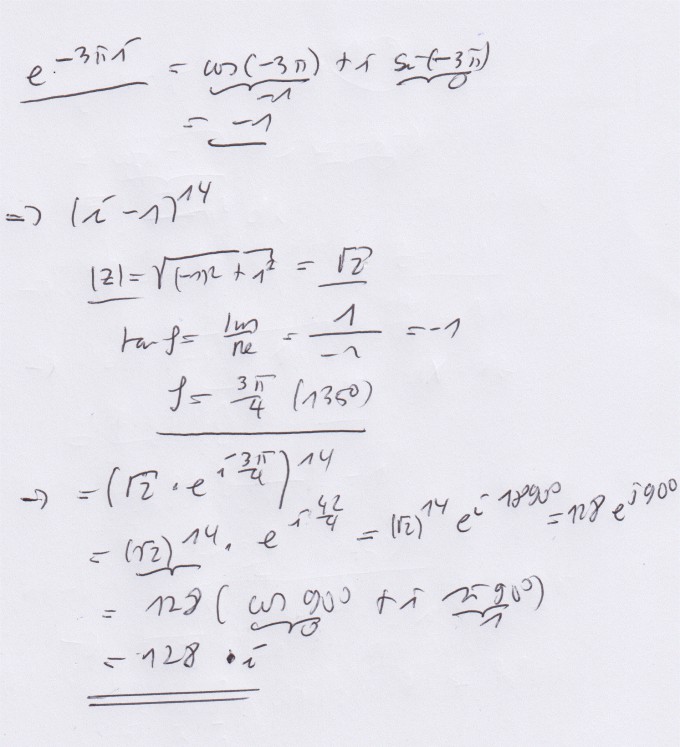 e^{-3πi} = cos(-3π) + i sin(-3π)
-1 0
= -1
=> (i - 1)^{14}
|z| = √((-1)² + 1²) = √2
tan φ = Im/Re = 1/-1 = -1
φ = 3π/4 (135°)
→ = (√2 · e^{i 3π/4})^{14}
= (√2)^{14} · e^{i 42/4} = (√2)^{14} e^{i 1890°} = 128 e^{i 90°}
= 128 (cos 90° + i sin 90°)
0 1
= 128 · i